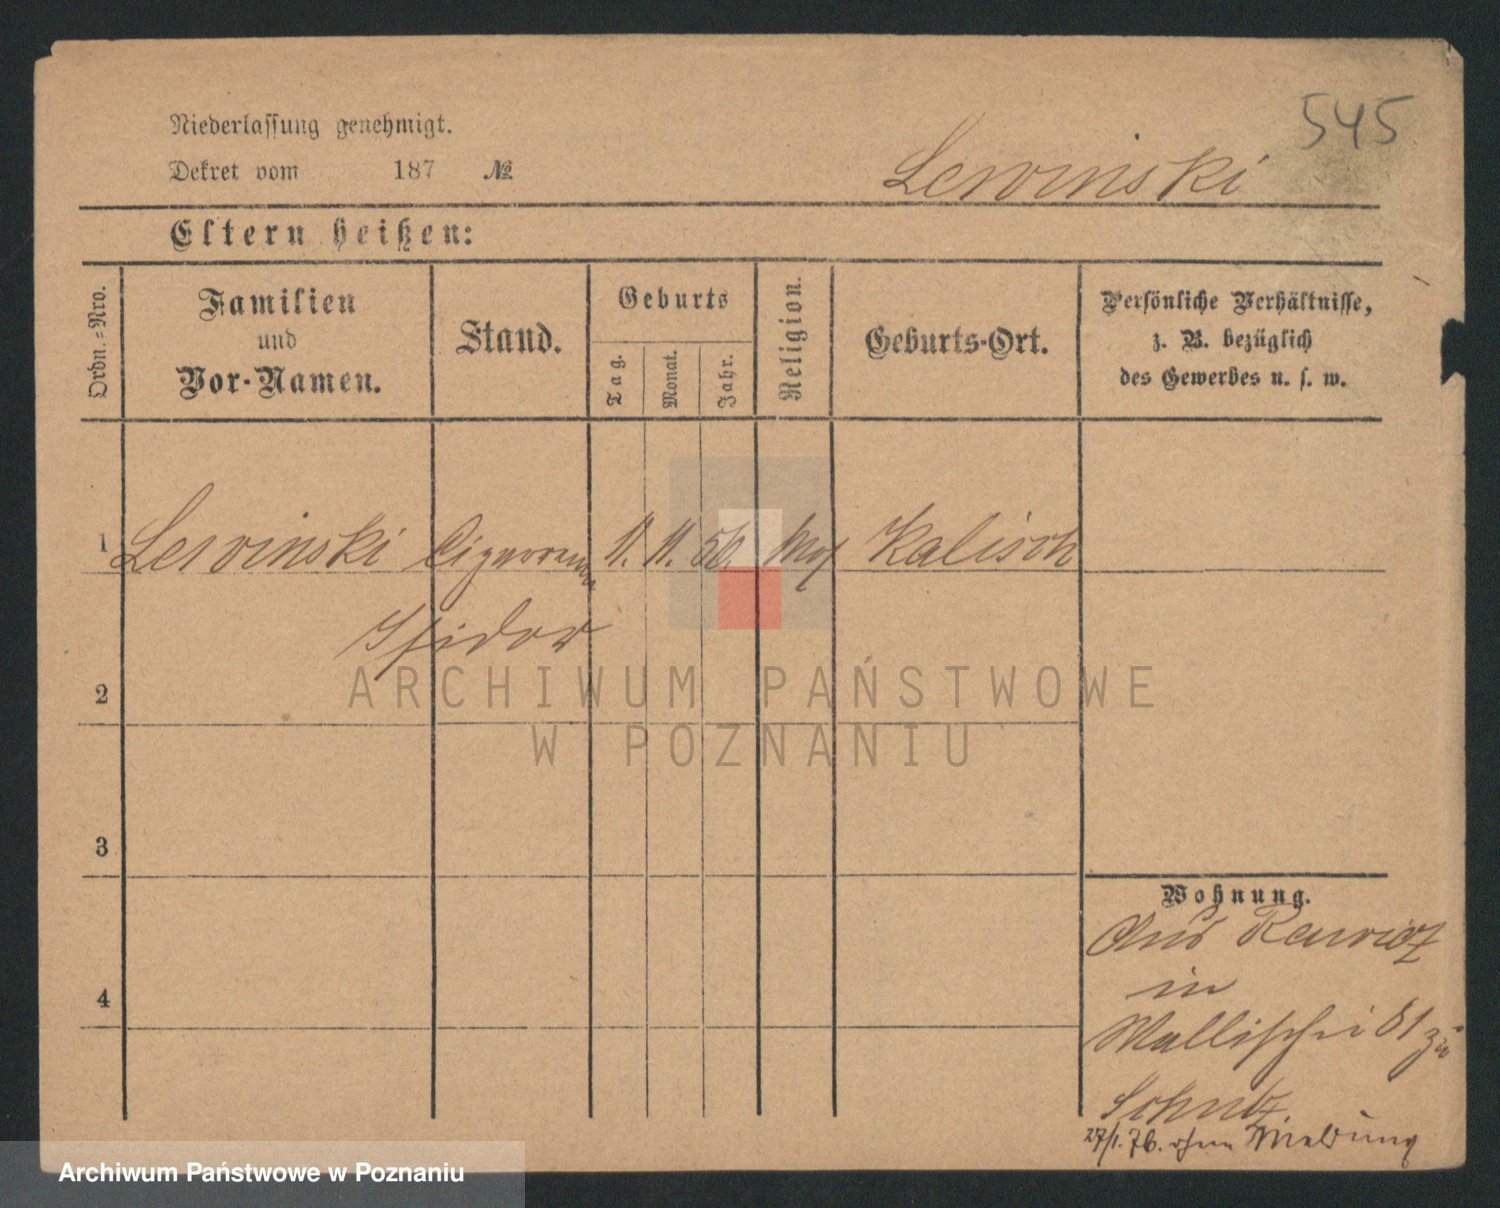 545
Niederlassung genehmigt.
Dekret vom 187 №
Lewinski
Eltern heißen:
Ordn.-Nro.
Familien
und
Vor-Namen.
Stand.
Geburts
Tag.
Monat.
Jahr.
Religion.
Geburts-Ort.
Persönliche Verhältnisse,
z. B. bezüglich
des Gewerbes u. s. w.
1 Lewinski 11. 11. 56. Mos Kalisch
Isidor
2
3
4
Wohnung.
Aus Rawicz
in
Wallischei 81 zu
Schulz.
27/1. 76. ohne Meldung
ARCHIWUM PAŃSTWOWE
W POZNANIU
Archiwum Państwowe w Poznaniu